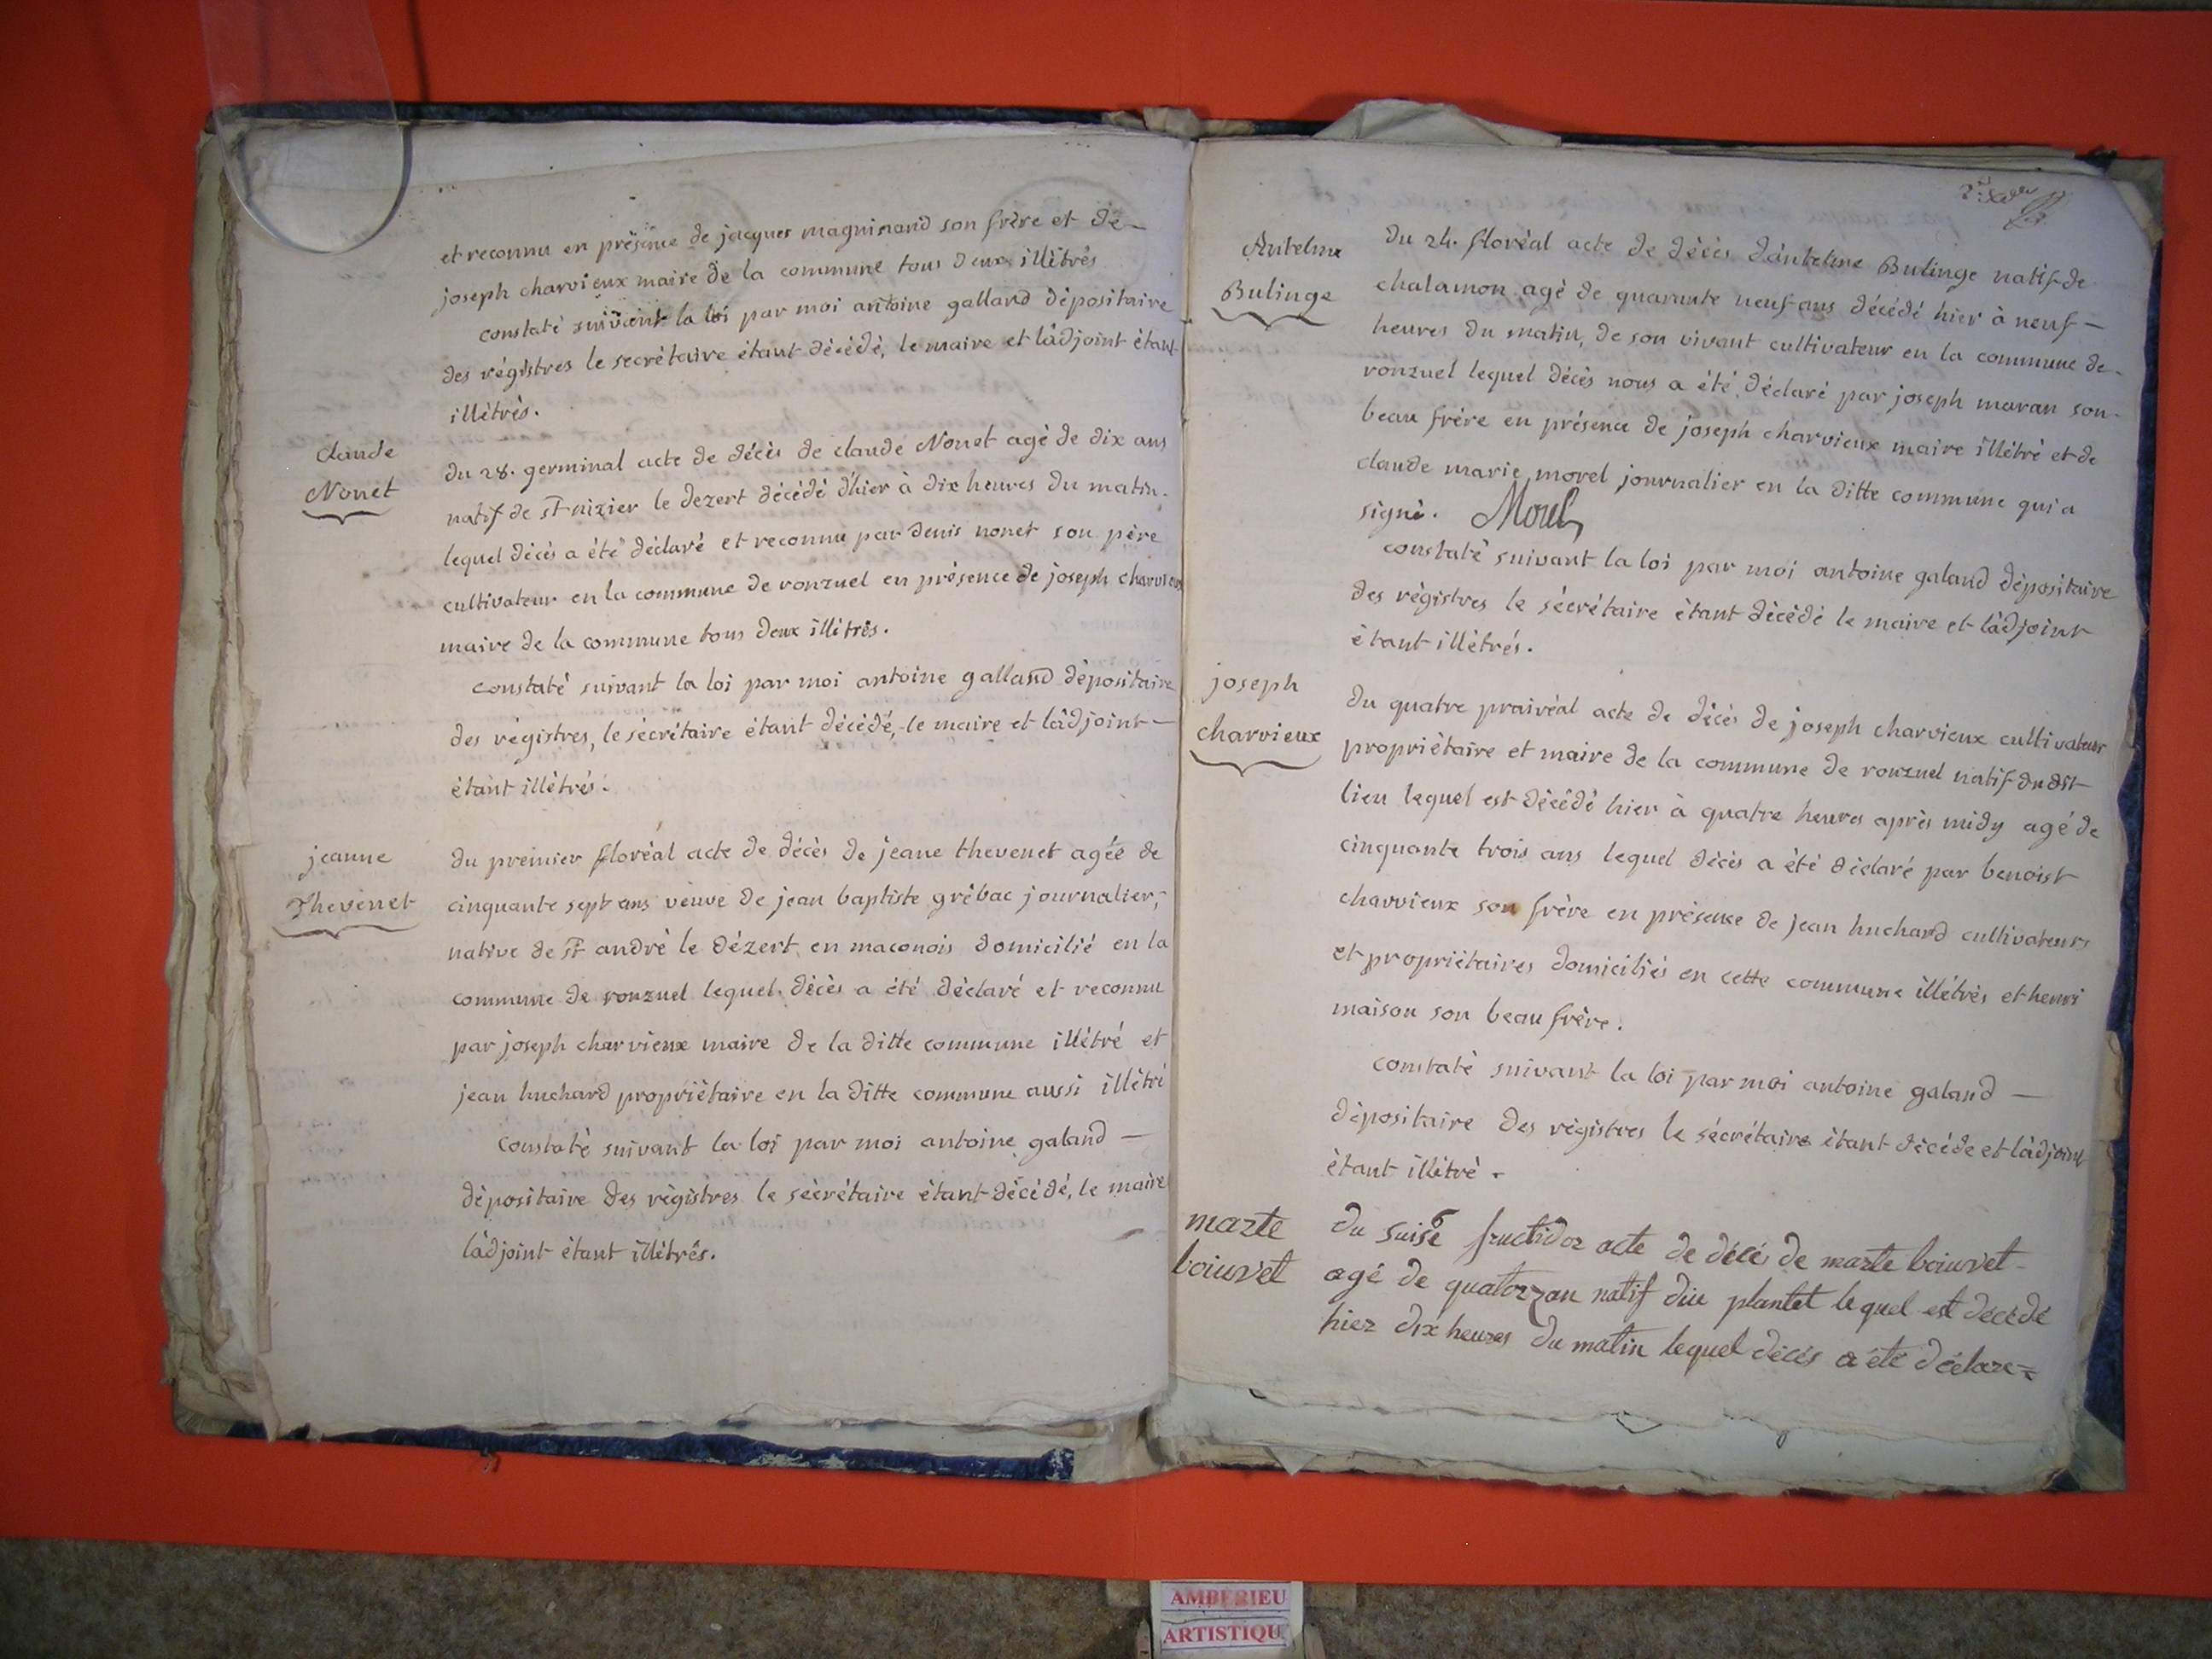 et reconnu en présence de jacques maguinand son frère et de
joseph charvieux maire de la commune tous deux illétrés
constaté suivant la loi par moi antoine galland dépositaire
des régistres le secrétaire étant décédé, le maire et l'adjoint étant
illétrés.
Claude
Nonet
du 28. germinal acte de décès de claude Nonet agé de dix ans
natif de st nizier le dezert décédé d'hier à dix heures du matin
lequel décès a été déclaré et reconnu par denis nonet son père
cultivateur en la commune de ronzuel en présence de joseph charvieux
maire de la commune tous deux illétrés.
constaté suivant la loi par moi antoine galland dépositaire
des régistres, le sécrétaire étant décédé, le maire et l'adjoint
étant illétrés.
jeanne
Thevenet
du premier floréal acte de décès de jeane thevenet agée de
cinquante sept ans veuve de jean baptiste grébac journalier,
native de st andré le dézert en maconois domicilié en la
commune de ronzuel lequel décès a été déclaré et reconnu
par joseph charvieux maire de la ditte commune illétré et
jean huchard propriétaire en la ditte commune aussi illétré
constaté suivant la loi par moi antoine galand
dépositaire des régistres le sécrétaire étant décédé, le maire
l'adjoint étant illétrés.
Antelme
Bulinge
du 24. floréal acte de décès d'antelme Bulinge natif de
chalamon agé de quarante neuf ans décédé hier à neuf
heures du matin, de son vivant cultivateur en la commune de
ronzuel lequel décès nous a été déclaré par joseph maran son
beau frère en présence de joseph charvieux maire illétré et de
claude marie morel journalier en la ditte commune qui a
signé. Morel
constaté suivant la loi par moi antoine galand dépositaire
des régistres le sécrétaire étant décédé le maire et l'adjoint
étant illétrés.
joseph
charvieux
du quatre prairéal acte de décès de joseph charvieux cultivateur
propriétaire et maire de la commune de ronzuel natif du dit
lieu lequel est décédé hier à quatre heures après midy agé de
cinquante trois ans lequel décès a été déclaré par benoist
charvieux son frère en présence de jean huchard cultivateurs
et propriétaires domiciliés en cette commune illétrés et henri
maison son beau frère.
constaté suivant la loi par moi antoine galand
dépositaire des régistres le sécrétaire étant décédé et l'adjoint
étant illétré.
marte
boiuvet
du suise fructidor acte de décés de marte boiuvet
agé de quatorzan natif diu plantet lequel est décédé
hier dix heures du matin lequel décés a été déclare=
AMBERIEU
ARTISTIQU